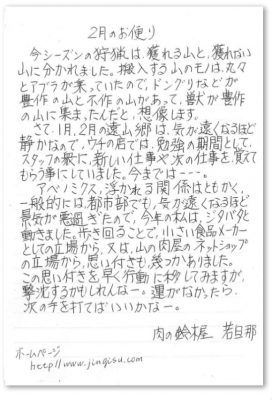 2月のお便り
今シーズンの狩猟は、獲れる山と、獲れない
山に分かれました。搬入する山のモノは、丸々
とアブラが乗っていたので、ドングリなどが
豊作の山と不作の山があって、獣が豊作
の山に集まったんだと、想像します。
さて、1月、2月の遠山郷は、気が遠くなるほど
静かなので、ウチの店では、勉強の期間として、
スタッフの衆に、新しい仕事や次の仕事を、覚えて
もらう事にしていました。今までは---。
アベノミクス、浮かれる関係はともかく、
一般的には、都市部でも、気が遠くなるほど
景気が悪過ぎたので、今年の私は、ジタバタと
動きました。歩き回ることで、小さい食品メーカー
としての立場から、又は、山の肉屋のネットショップ
の立場から、思い付きも、幾つかありました。
この思い付きを早く行動に移してみますが、
撃沈するかもしれんなー。運がなかったら、
次の手を打てばいいかなー。
肉の鈴木屋 若旦那
ホームページ
http://www.jingisu.com/